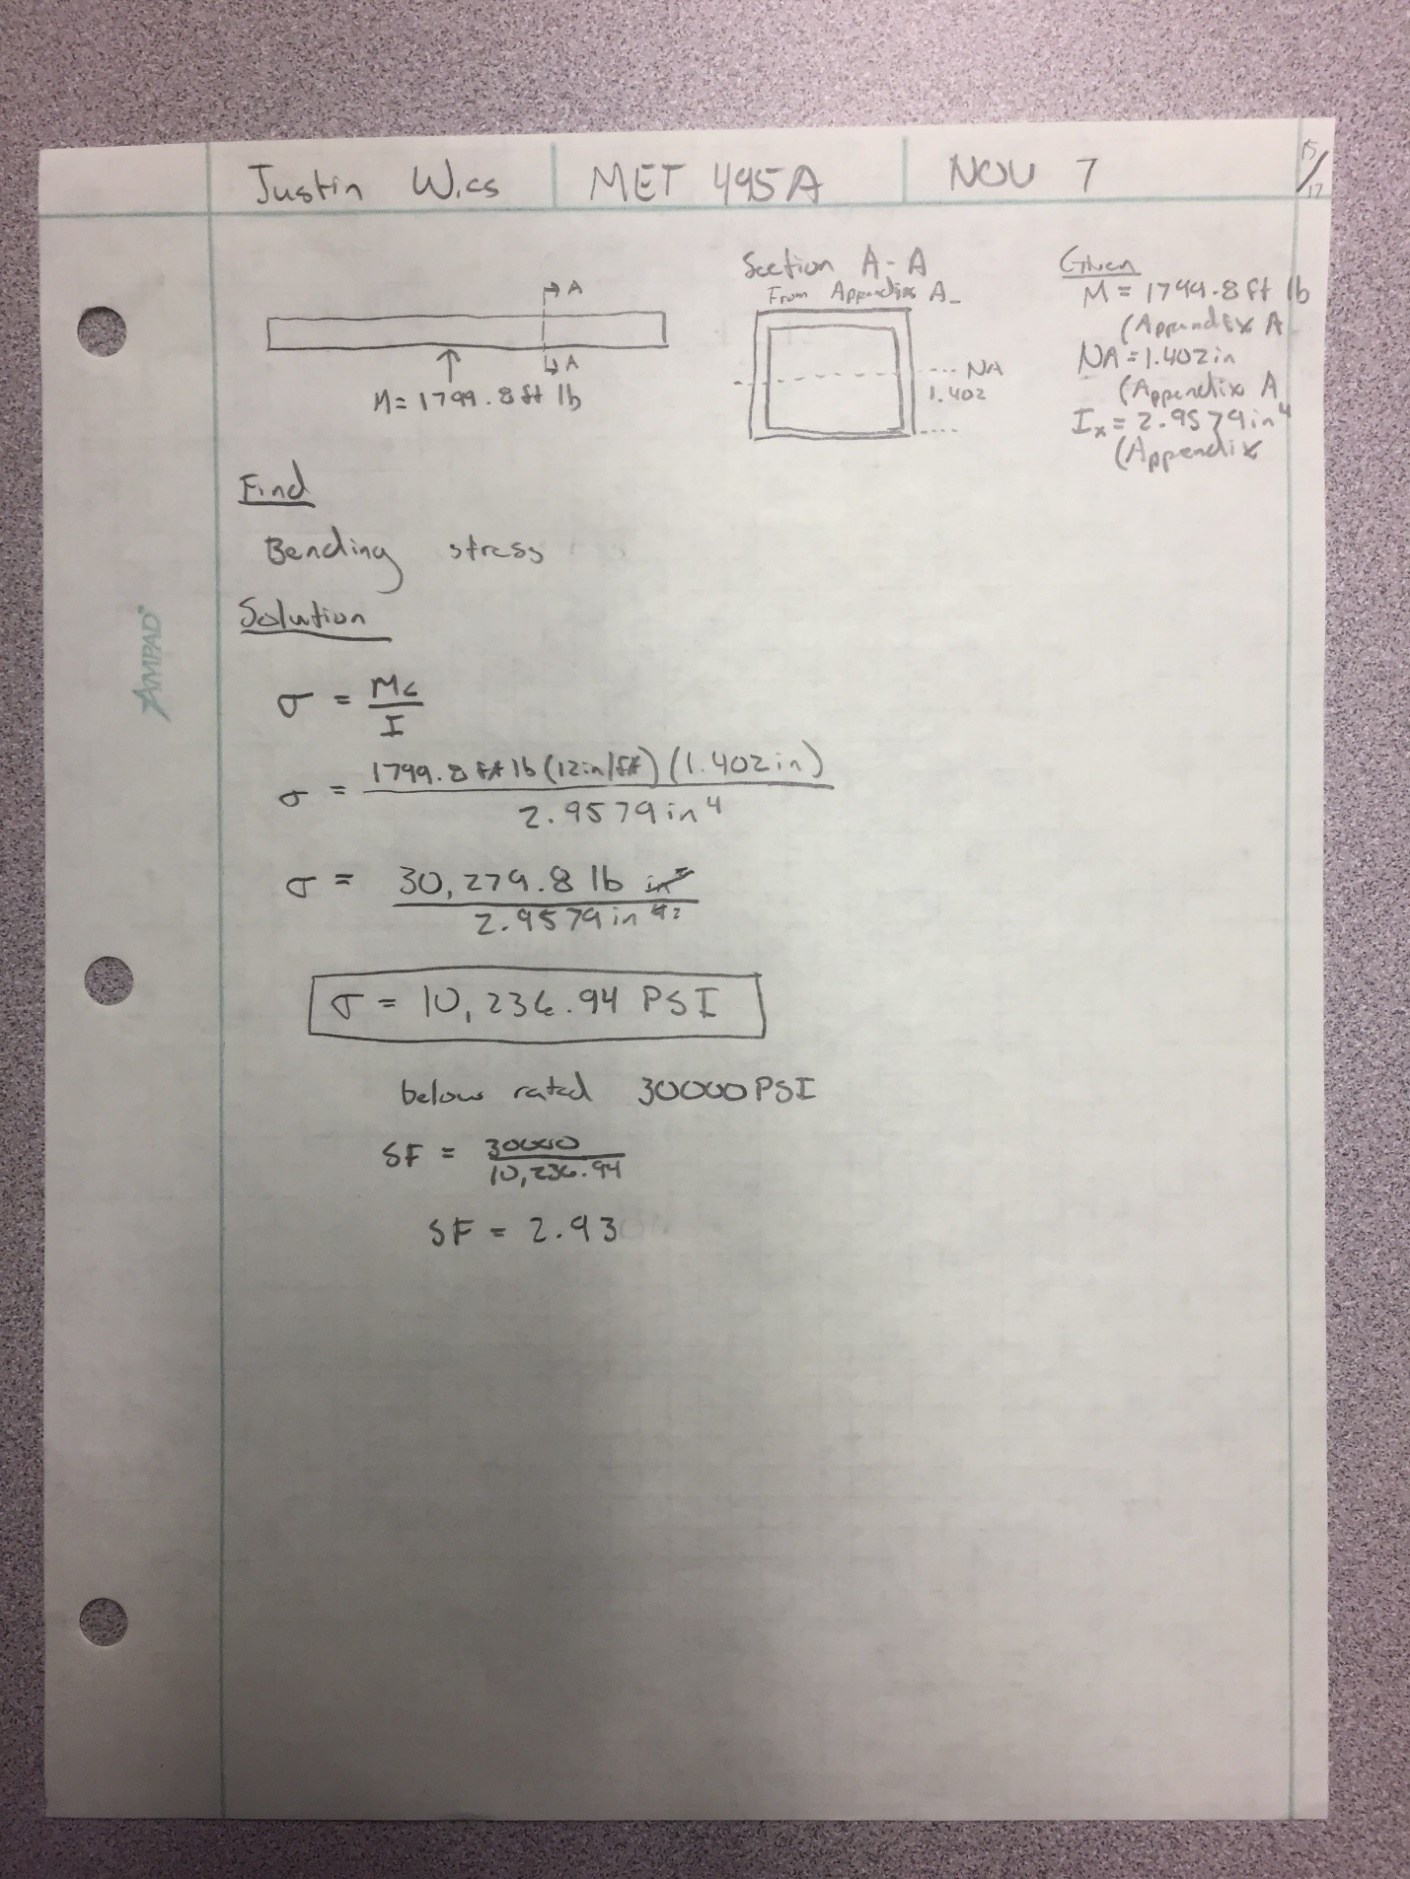 Justin Wics MET 495A NOV 7 15/17
A
A
M = 1799.8 ft lb
Section A-A
From Appendix A-
NA
1.402
Given
M = 1799.8 ft lb
(Appendix A
NA = 1.402 in
(Appendix A
Ix = 2.9579 in⁴
(Appendix
Find
Bending stress
Solution
σ = Mc / I
σ = 1799.8 ft lb (12 in/ft) (1.402 in) / 2.9579 in⁴
σ = 30,279.8 lb in² / 2.9579 in⁴ ²
σ = 10,236.94 PSI
below rated 30000 PSI
SF = 30000 / 10,236.94
SF = 2.93
AMPAD